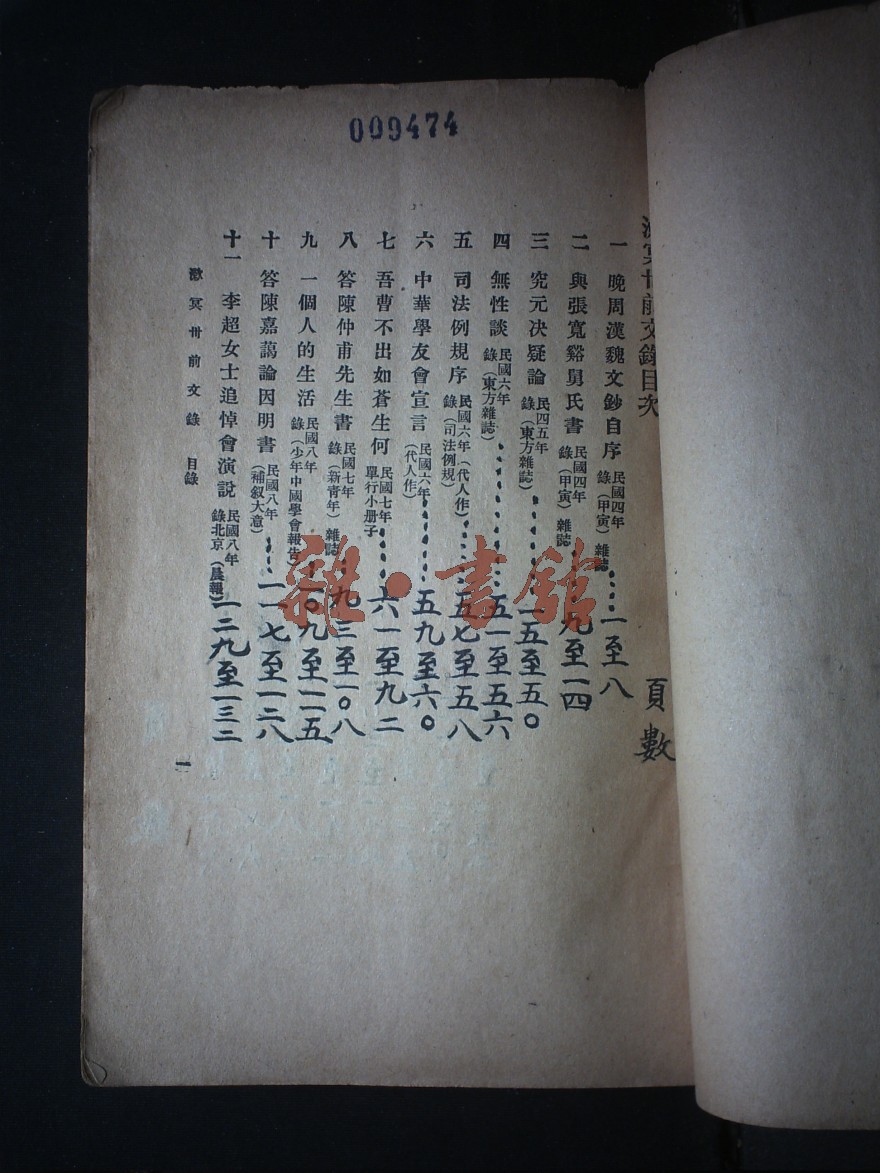 009474
漱冥卅前文錄目次
頁數
一 晚周漢魏文鈔自序 民國四年 錄(甲寅)雜誌 一至八
二 與張寬谿舅氏書 民國四年 錄(甲寅)雜誌 九至一四
三 究元決疑論 民四五年 錄(東方雜誌) 一五至五〇
四 無性談 民國六年 錄(東方雜誌) 五一至五六
五 司法例規序 民國六年(代人作) 錄(司法例規) 五七至五八
六 中華學友會宣言 民國六年 (代人作) 五九至六〇
七 吾曹不出如蒼生何 民國七年 單行小册子 六一至九二
八 答陳仲甫先生書 民國七年 錄(新青年)雜誌 九三至一〇八
九 一個人的生活 民國八年 錄(少年中國學會報告) 一〇九至一一五
十 答陳嘉藹論因明書 民國八年 (補叙大意) 一一七至一二八
十一 李超女士追悼會演說 民國八年 錄北京(晨報) 一二九至一三二
漱冥卅前文錄 目錄
一
雜·書館